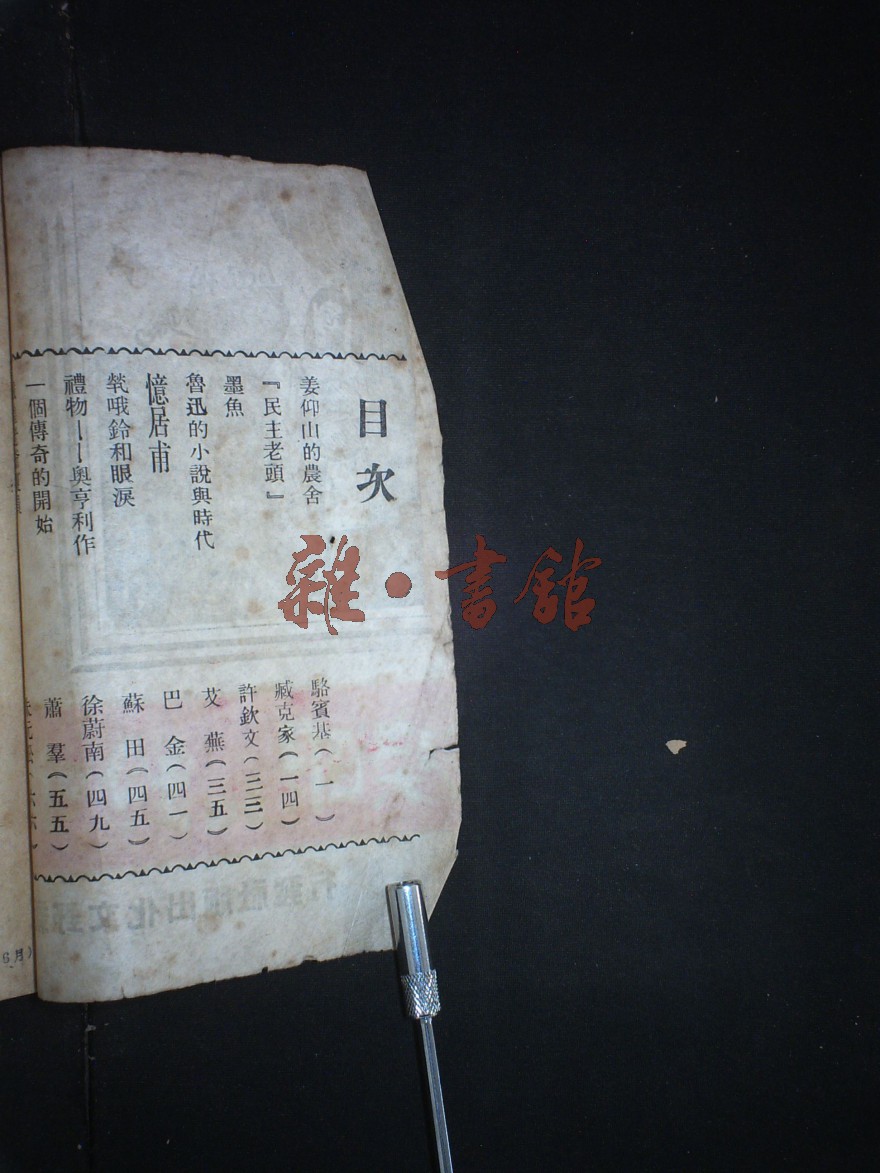 目次
姜仰山的農舍 駱賓基(一)
『民主老頭』 臧克家(一四)
墨魚 許欽文(三三)
魯迅的小說與時代 艾蕪(三五)
憶居甫 巴金(四一)
哦鈴和眼淚 蘇田(四五)
禮物——奧亨利作 徐蔚南(四九)
一個傳奇的開始 蕭羣(五五)
6月)
雜·書館